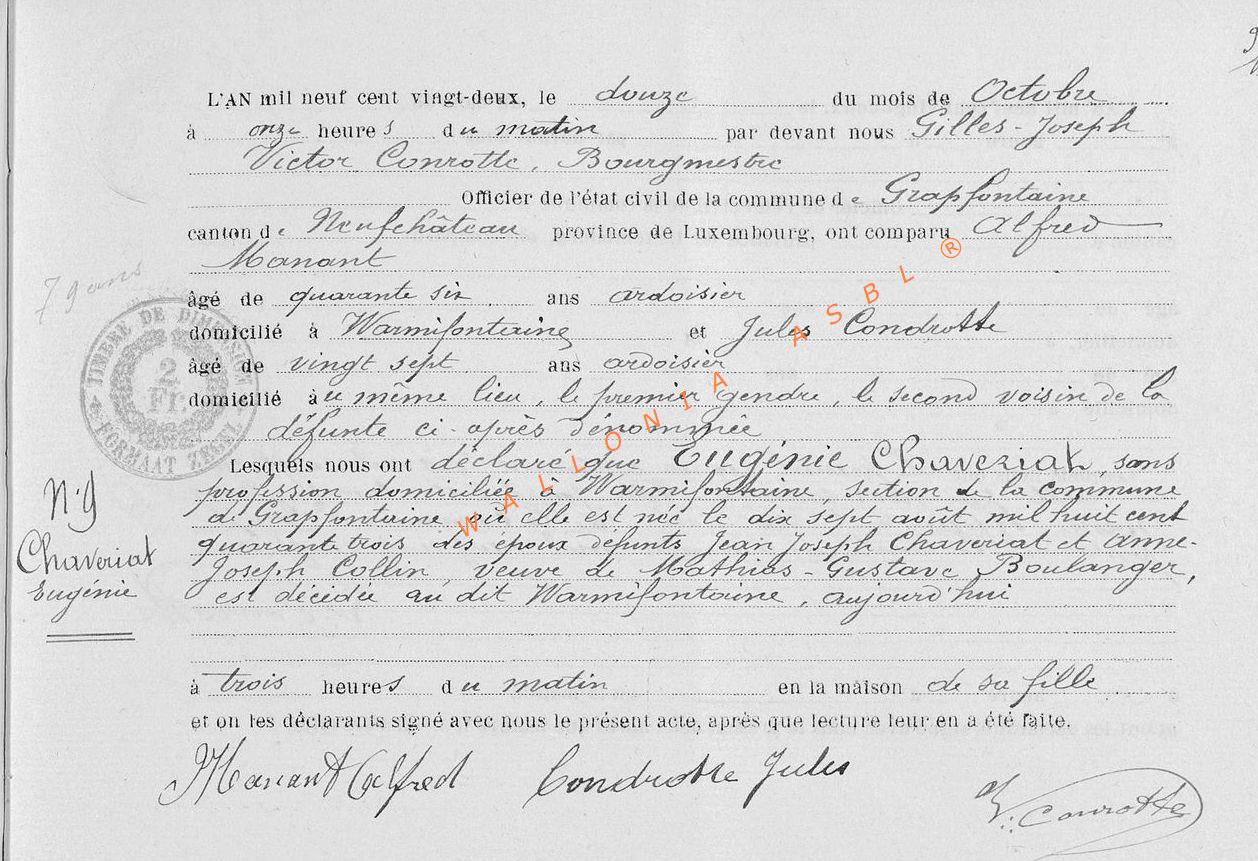 L'AN mil neuf cent vingt-deux, le douze du mois de Octobre
à onze heures du matin par devant nous Gilles-Joseph
Victor Conrotte, Bourgmestre
Officier de l'état civil de la commune de Grapfontaine
canton de Neufchâteau province de Luxembourg, ont comparu Alfred
Manant
79 ans
âgé de quarante six ans ardoisier
domicilié à Warmifontaine et Jules Condrotte
âgé de vingt sept ans ardoisier
domicilié au même lieu, le premier gendre, le second voisin de la
défunte ci-après dénommée
TIMBRE DE DIMENSION
2
Fr.
FORMAAT ZEGEL
WALLONIA ASBL ®
Lesquels nous ont déclaré que Eugénie Chaveriat, sans
profession domiciliée à Warmifontaine, section de la commune
de Grapfontaine où elle est née le dix sept août mil huit cent
quarante trois des époux défunts Jean Joseph Chaveriat et Anne-
Joseph Collin veuve de Mathias-Gustave Boulanger,
est décédée au dit Warmifontaine, aujourd'hui
N° 9
Chaveriat
Eugénie
à trois heures du matin en la maison de sa fille
et on les déclarants signé avec nous le présent acte, après que lecture leur en a été faite.
Manant Alfred Condrotte Jules
V. Conrotte